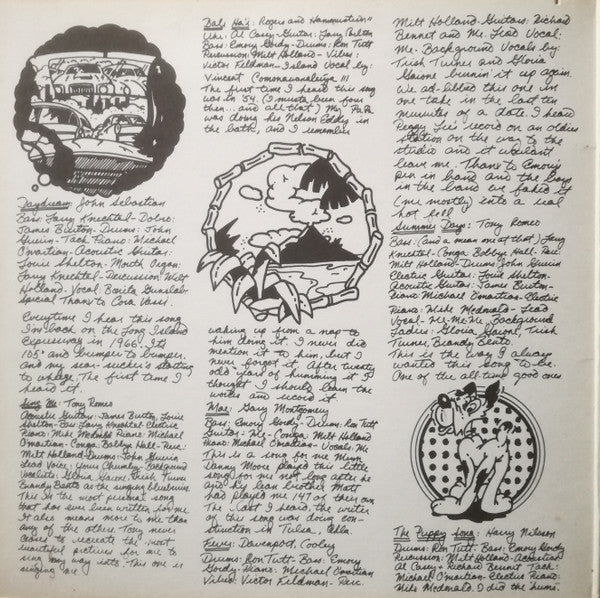 Daydream: John Sebastian
Bass: Larry Knechtel - Dobro:
James Burton - Drums: John
Guerin - Tack Piano: Michael
Omartian - Acoustic Guitar:
Louie Shelton - Mouth Organ:
Larry Knechtel - Percussion: Milt
Holland. Vocal: Bonita
Special Thanks to Cora Vassi.
Everytime I hear this song
I'm back on the Long Island
Expressway in 1966. It's
105° and bumper to bumper.
and my seat-sucker's starting
to The first time I
heard it
Sing Me: Tony Romeo
Acoustic Guitar: James Burton, Louie
Shelton - Bass: Larry Knechtel - Electric
Piano: Mike McDonald - Piano: Michael
Omartian - Conga: Bobbye Hall - Perc:
Milt Holland - Drums: John Guerin
Lead Voice: Yours Background
Vocalists: Gloria Gaione, Trish Turner
Brandy Bento as the singing
This is the most personal song
that has ever been written for me
It also means more to me than
any of the others. Tony
to recreate the most
beautiful pictures for me to
sing my way into. This one is
singing me.
Bali Hai: Rogers and Hammerstein II
Uke: Al Casey - Guitar: Larry Carlton
Bass: Emory Gordy - Drums: Ron Tutt
Percussion: Milt Holland - Vibes:
Victor Feldman - Island Vocal by:
Vincent III
The first time I heard this song
was in '54. (I musta been four
then. and all that) My Pa Pa
was doing his Nelson Eddy in
the bath, and I remember
waking up from a nap to
him doing it. I never did
mention it to him, but I
never forgot it. After twenty
odd years of humming it I
thought I should learn the
words and record it.
Mae: Gary Montgomery
Bass: Emory Gordy - Drums: Ron Tutt
Guitar - Me - Conga: Milt Holland
Piano: Michael Omartian - Vocals: Me
This is a song for me Mum.
Danny Moore played this little
song for me not long after he
and his dear brother Matt
had played me 147 of their own
The last I heard, the writer
of this song was doing con-
struction in Tulsa, Okla.
Fever: Davenport, Cooley
Drums: Ron Tutt - Bass: Emory
Gordy - Piano: Michael Omartian
Vibes: Victor Feldman - Perc.
Milt Holland - Guitars: Richard
Bennet and Me. Lead Vocal:
Me. Background Vocals by:
Trish Turner and Gloria
Gaione burnin' it up again.
We ad-libbed this one in
one take in the last ten
minutes of a date. I heard
Peggy Lee's record on an oldies
station on the way to the
studio and it wouldn't
leave me. Thanx to Emory's
pen in hand and the boys
in the band we faked it
(me mostly) into a real
hot
Summer Days: Tony Romeo
Bass: (and a mean one at that) Larry
Knechtel - Conga: Bobbye Hall - Perc:
Milt Holland - Drums: John Guerin
Electric Guitar: Louie Shelton -
Acoustic Guitar: James Burton -
Piano: Michael Omartian - Electric
Piano: Mike Mcdonald - Lead
Vocal - Me - Me - Me. Background
Ladies: Gloria Gaione, Trish
Turner, Brandy Bento.
This is the way I always
wanted this song to be.
One of the all-time good ones.
The Puppy Song: Harry Nilsson
Drums: Ron Tutt - Bass: Emory Gordy
Percussion: Milt Holland - Acoustics:
Al Casey & Richard Bennet Tack:
Michael Omartian - Electric Piano:
Mike Mcdonald. I did the hums.